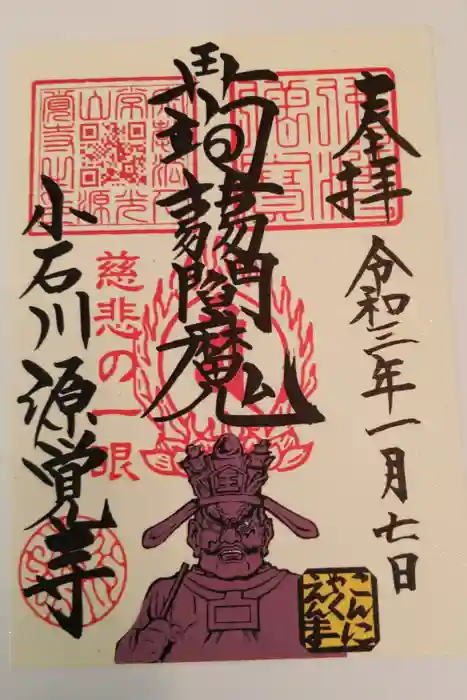 奉拝
令和三年一月七日
佛法僧寶
蒟蒻閻魔
慈悲の一眼
小石川源覚寺
こんに
やく
えんま